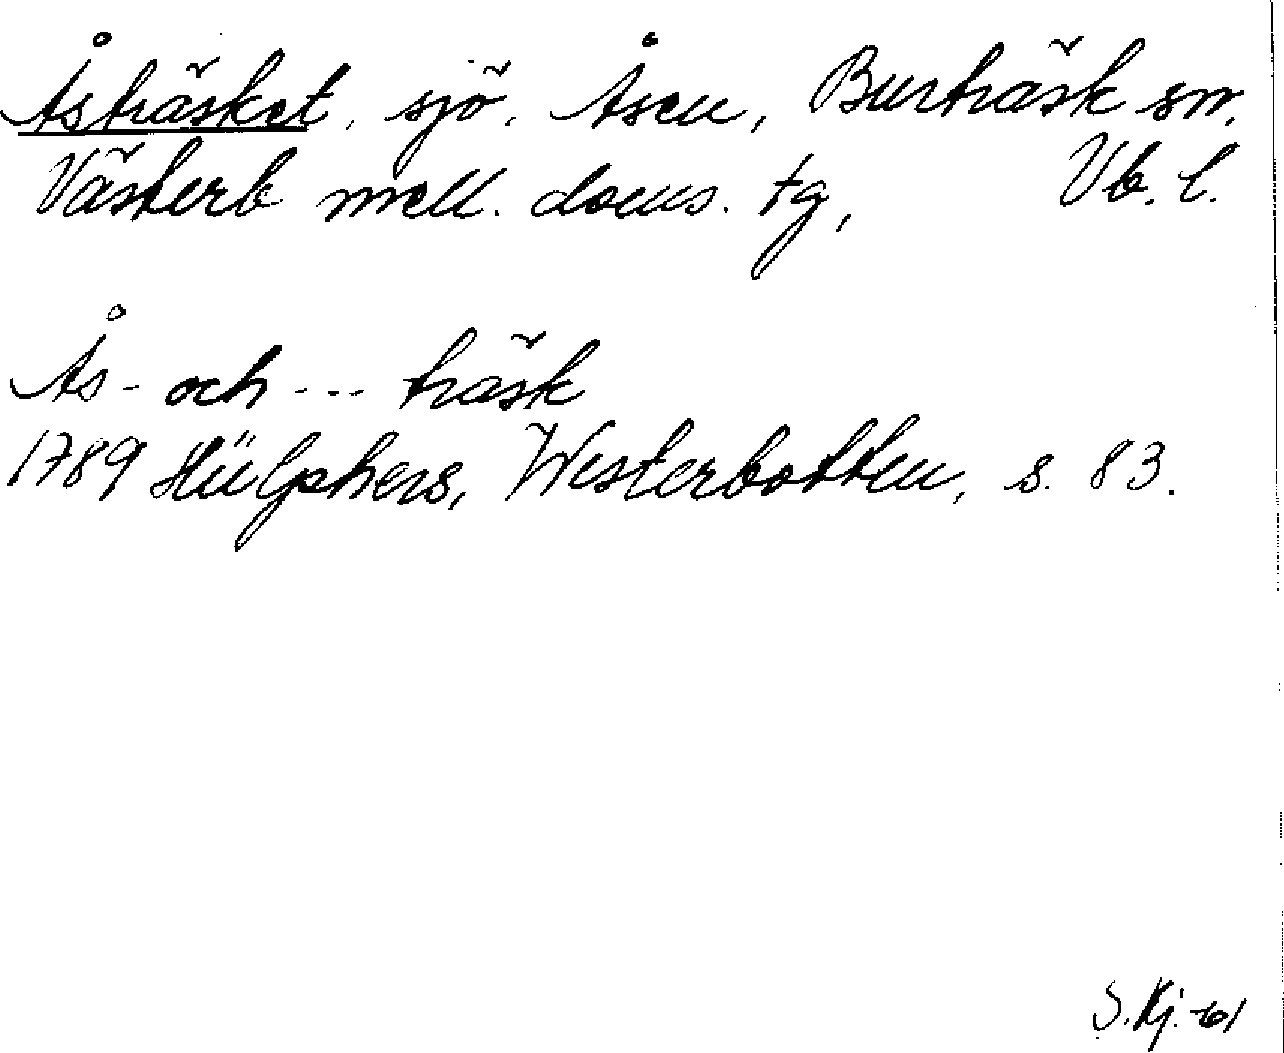 Åsträsket, sjö. Åsen, Burträsk sn.
Västerb mell. doms. tg, Vb. l.
Ås- och --- träsk
1789 Hülphers, Westerbotten, s. 83.
S.Kj.-61